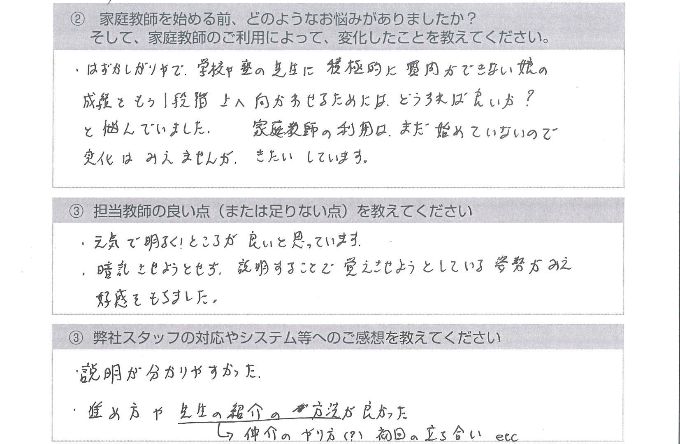 ② 家庭教師を始める前、どのようなお悩みがありましたか?
そして、家庭教師のご利用によって、変化したことを教えてください。
・はずかしがりやで、学校や塾の先生に積極的に質問ができない娘の
成績をもう1段階上へ向かわせるためには、どうすれば良いか?
と悩んでいました. 家庭教師の利用は、まだ始めていないので
変化はみえませんが、きたいしています。
③ 担当教師の良い点(または足りない点)を教えてください
・元気で明るい!ところが良いと思っています.
・暗記させようとせず、説明することで覚えさせようとしている姿勢がみえ
好感をもちました。
③ 弊社スタッフの対応やシステム等へのご感想を教えてください
・説明が分かりやすかった.
・進め方や先生の紹介の方法が良かった
↳仲介のやり方(?) 初回の立ち合い etc